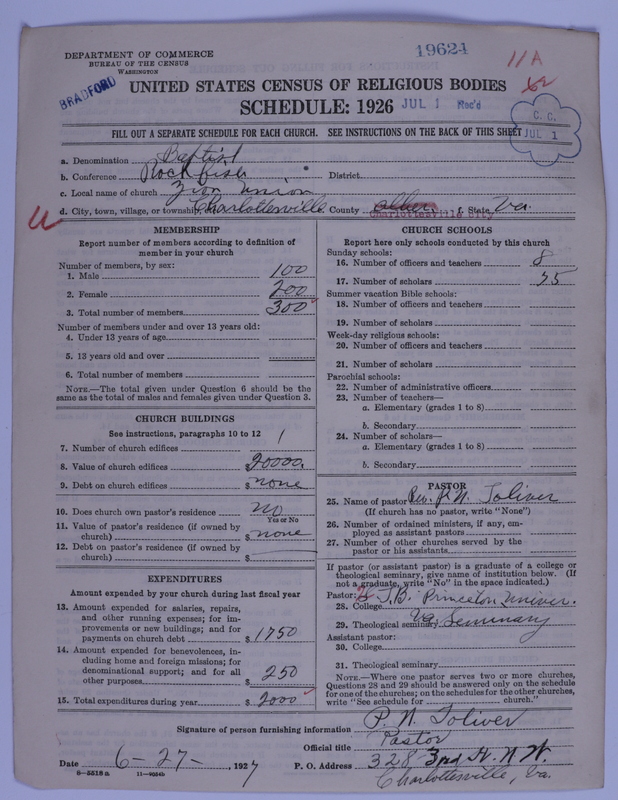 19624
11 A
DEPARTMENT OF COMMERCE
BUREAU OF THE CENSUS
WASHINGTON
BRADFORD
UNITED STATES CENSUS OF RELIGIOUS BODIES
SCHEDULE: 1926 JUL 1 Rec'd
C. C.
JUL 1
FILL OUT A SEPARATE SCHEDULE FOR EACH CHURCH. SEE INSTRUCTIONS ON THE BACK OF THIS SHEET
a. Denomination Baptist
b. Conference Rockfish District
c. Local name of church Zion Union
d. City, town, village, or township Charlottesville County Charlottesville City f. State Va.
MEMBERSHIP
Report number of members according to definition of
member in your church
Number of members, by sex:
1. Male 100
2. Female 200
3. Total number of members 300
Number of members under and over 13 years old:
4. Under 13 years of age
5. 13 years old and over
6. Total number of members
NOTE.—The total given under Question 6 should be the
same as the total of males and females given under Question 3.
CHURCH BUILDINGS
See instructions, paragraphs 10 to 12
7. Number of church edifices 1
8. Value of church edifices $20000.
9. Debt on church edifices $none
10. Does church own pastor's residence no
Yes or No
11. Value of pastor's residence (if owned by
church) $none
12. Debt on pastor's residence (if owned by
church) $
EXPENDITURES
Amount expended by your church during last fiscal year
13. Amount expended for salaries, repairs,
and other running expenses; for im-
provements or new buildings; and for
payments on church debt $1750
14. Amount expended for benevolences, in-
cluding home and foreign missions; for
denominational support; and for all
other purposes $250
15. Total expenditures during year $2000
CHURCH SCHOOLS
Report here only schools conducted by this church
Sunday schools:
16. Number of officers and teachers 8
17. Number of scholars 75
Summer vacation Bible schools:
18. Number of officers and teachers
19. Number of scholars
Week-day religious schools:
20. Number of officers and teachers
21. Number of scholars
Parochial schools:
22. Number of administrative officers
23. Number of teachers—
a. Elementary (grades 1 to 8)
b. Secondary
24. Number of scholars—
a. Elementary (grades 1 to 8)
b. Secondary
PASTOR
25. Name of pastor Rev. P. N. Toliver
(If church has no pastor, write "None")
26. Number of ordained ministers, if any, em-
ployed as assistant pastors
27. Number of other churches served by the
pastor or his assistants
If pastor (or assistant pastor) is a graduate of a college or
theological seminary, give name of institution below. (If
not a graduate, write "No" in the space indicated.)
Pastor:
28. College T.B. Princeton Univer.
29. Theological seminary Va Seminary
Assistant pastor:
30. College
31. Theological seminary
NOTE.—Where one pastor serves two or more churches,
Questions 28 and 29 should be answered only on the schedule
for one of the churches; on the schedules for the other churches,
write "See schedule for church."
Signature of person furnishing information P. N. Toliver
Official title Pastor
Date 6-27-, 1927 P. O. Address 328 3rd St. N. W.
8-5518a 11-9034b Charlottesville, Va.